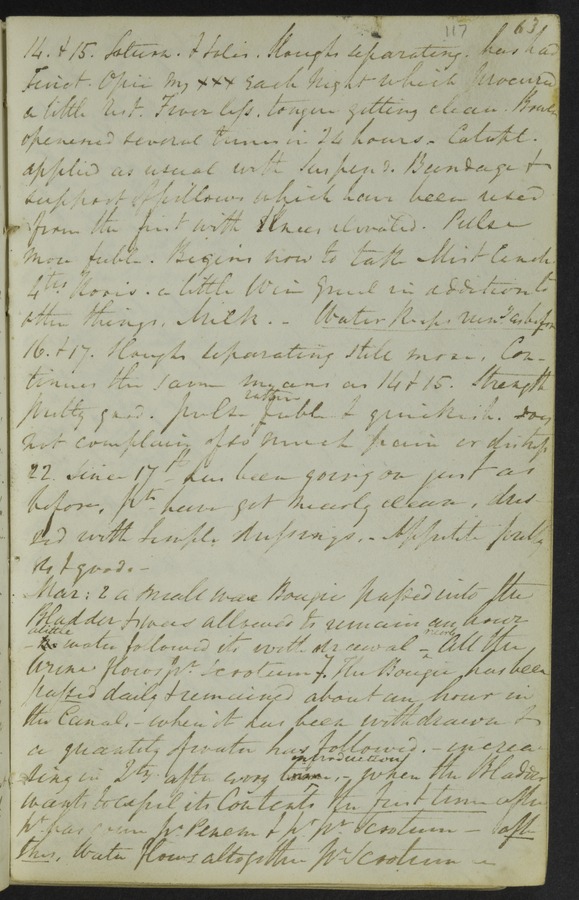 117 63
14. & 15. Saturn. & Solis. Sloughs separating. has had
Tinct. Opii m xxx each Night which procured
a little rest. Fever less. tongue getting clean. Bowels
openened several times in 24 hours - Catapl.
applied as usual with Suspens. Bandage &
support of pillows which have been used
from the first with Knees elevated. Pulse
more feeble. Begins now to take Mist Cinch.
4tis Horis. a little Wine Gruel in addition to
other things. Milk. - Water keeps runs. as before
16. & 17. Sloughs separating still more. Con-
tinues the same means as 14 & 15. Strength
pretty good. pulse rather feeble & quickish. does
not complain of so much pain or distress
22. Since 17th has been going on just as
before, pts have got nearly clean, dres-
sed with simple dressings. - Appetite
& good. -
Mar: 2 a small wax Bougie passed into the
Bladder & was allowed to remain an hour
- a little water followed its withdrawal - now All the
Urine flows pr Scrotum. The Bougie has been
passed daily & remained about an hour in
the Canal. - when it has been withdrawn &
a quantity of water has followed. - increa-
sing in Qty after every introduction. - when the Bladder
wants to expel its Contents the first time after
it passes pr Penem & pt pr Scrotum - after
this, Water flows altogether pr Scrotum -